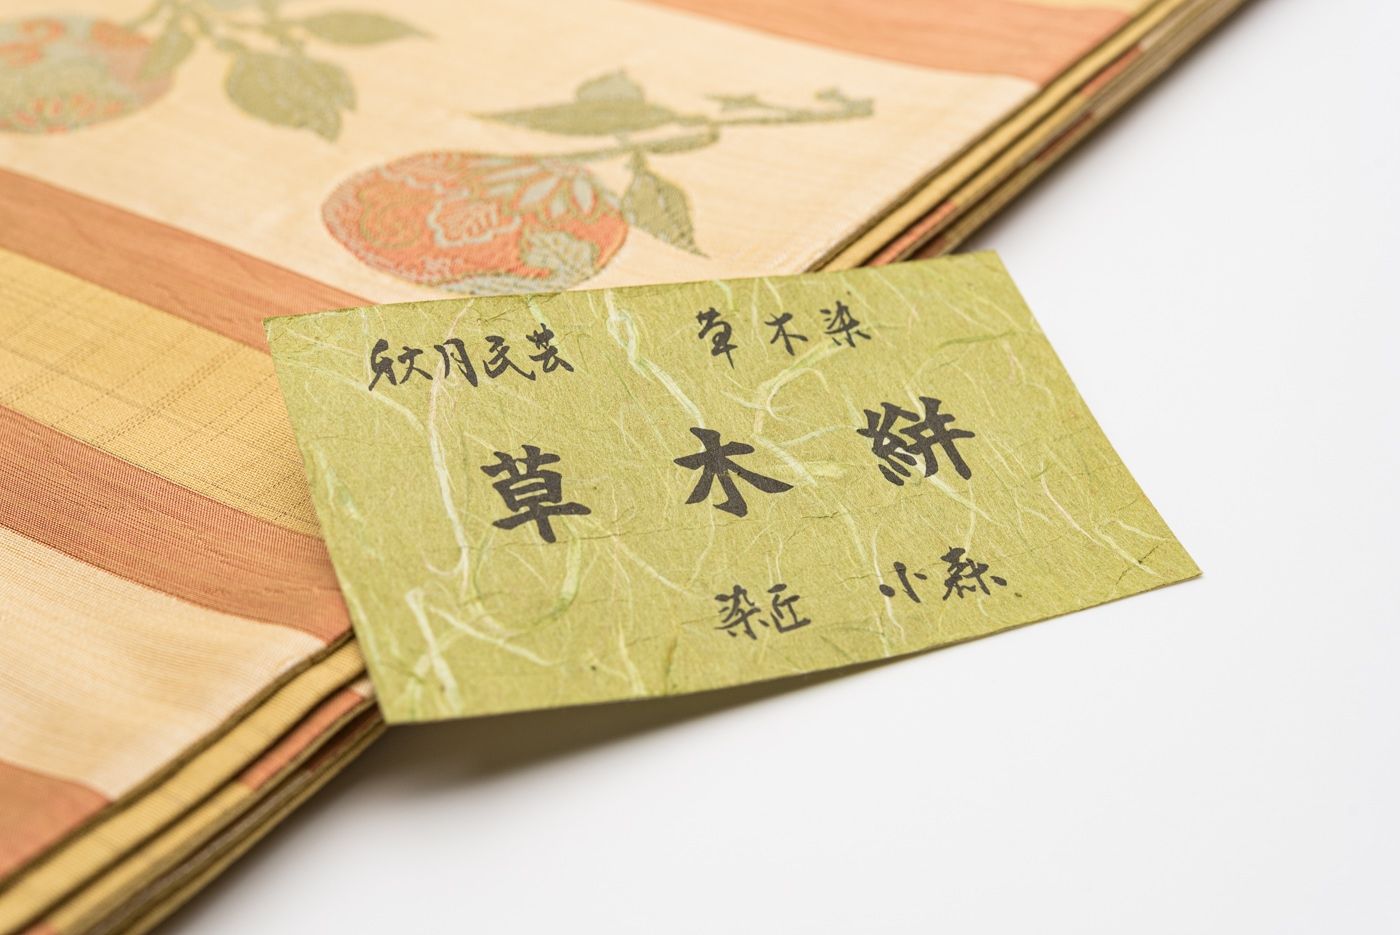 秋月民芸 草木染
草木絣
染匠 小森